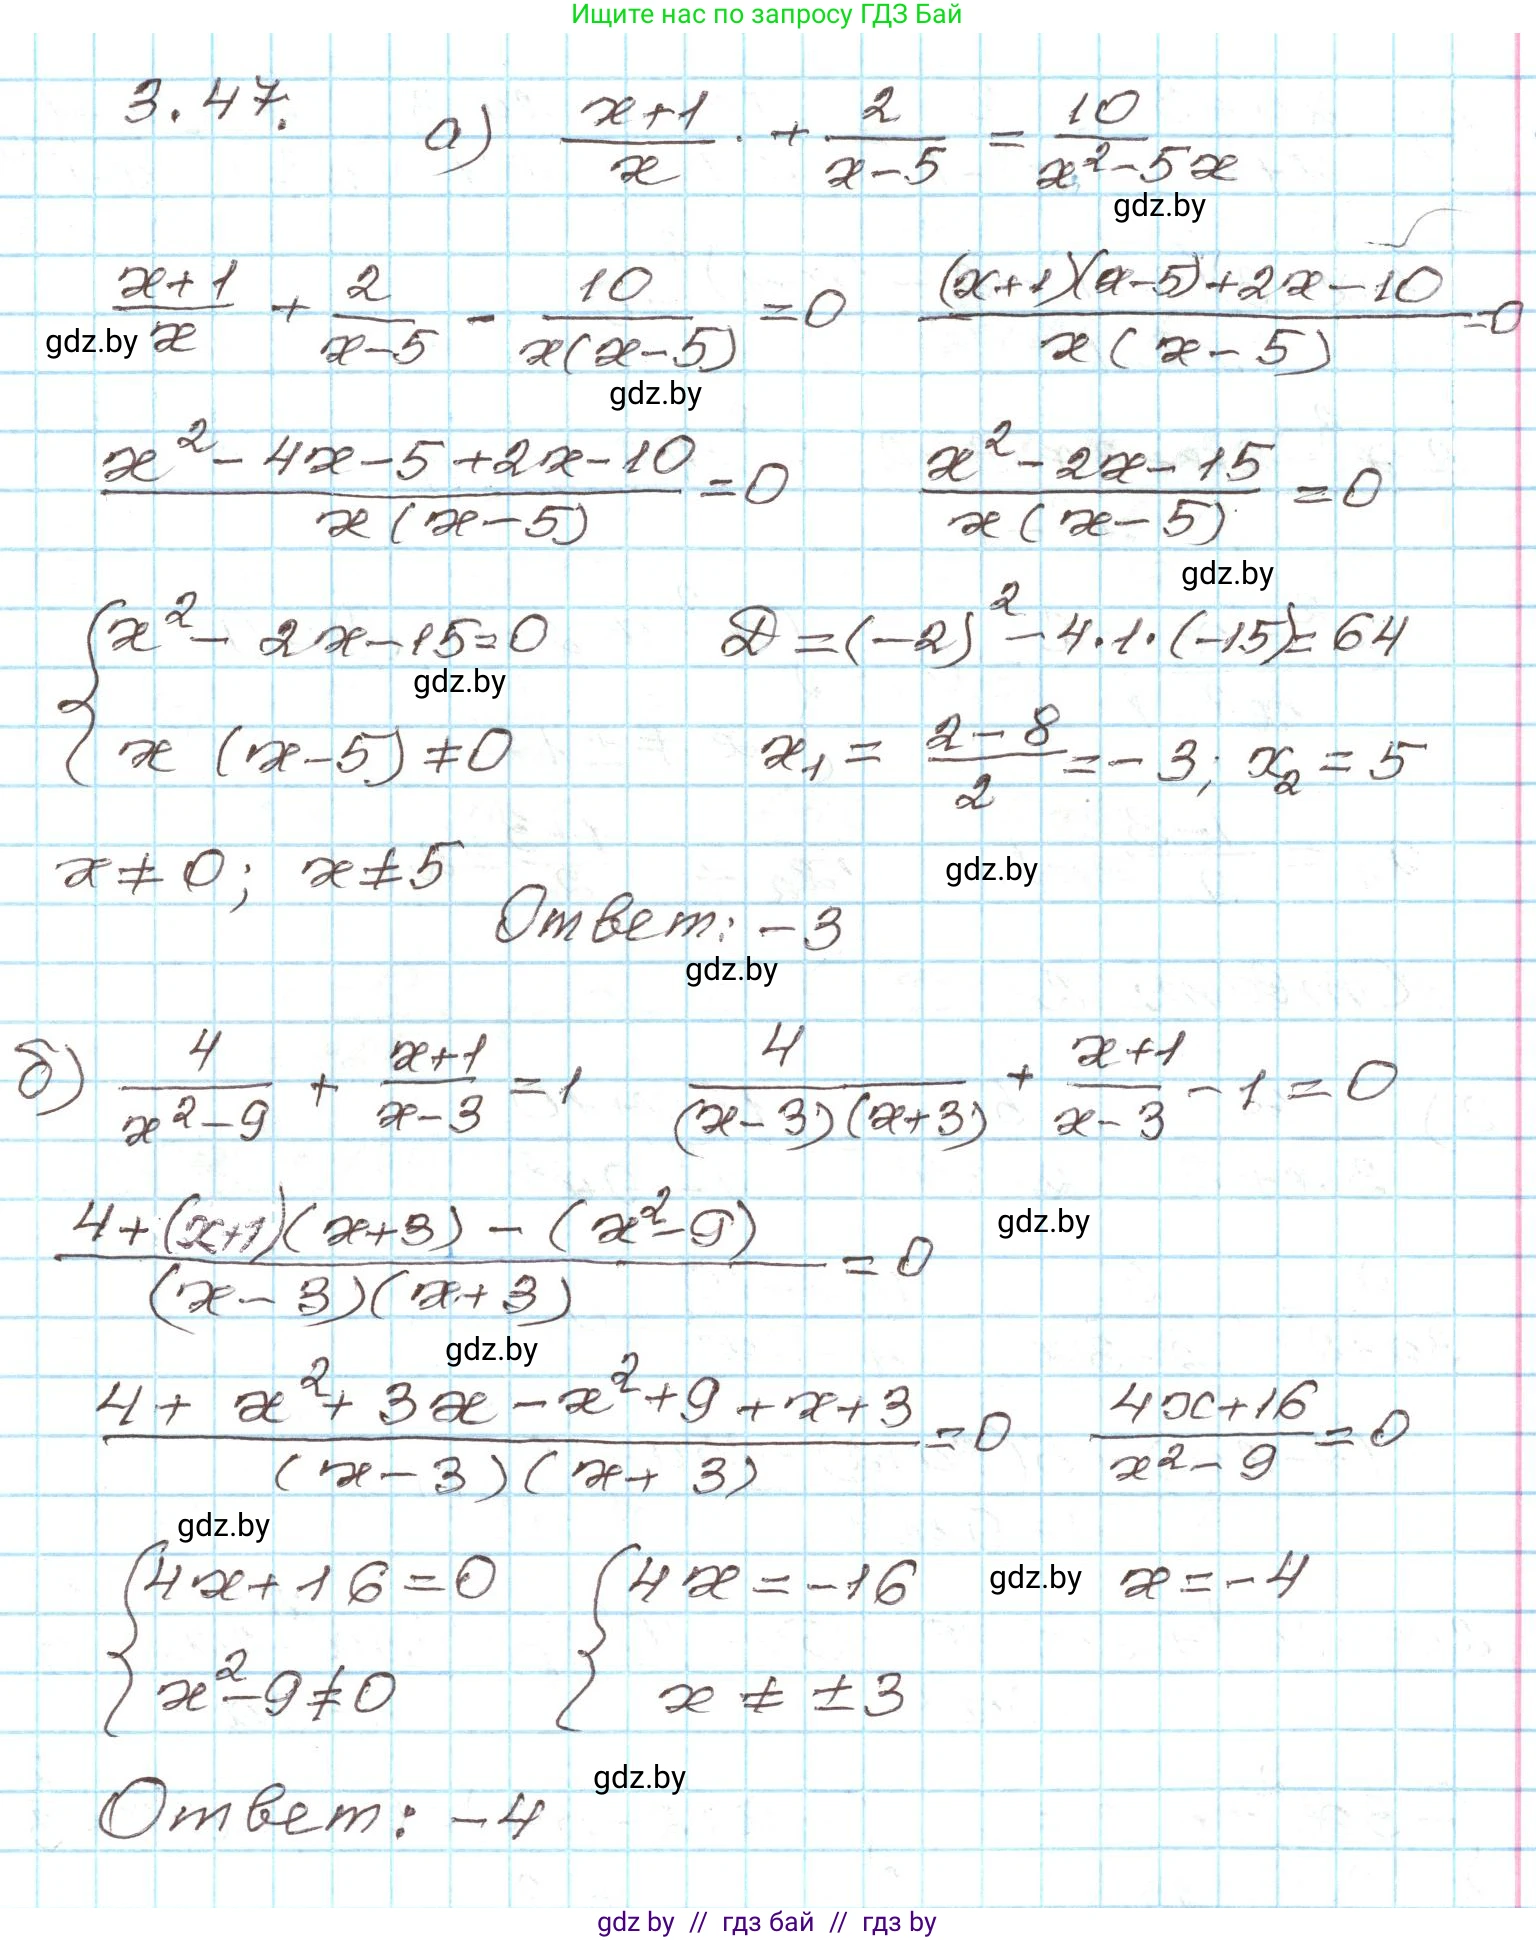 Ищите нас по запросу ГДЗ Бай
3.47. а) (x+1)/x + 2/(x-5) = 10/(x²-5x)
gdz.by
(x+1)/x + 2/(x-5) - 10/(x(x-5)) =0   ((x+1)(x-5)+2x-10)/(x(x-5)) =0
gdz.by
gdz.by
(x²-4x-5+2x-10)/(x(x-5)) =0   (x²-2x-15)/(x(x-5)) =0
gdz.by
{x²-2x-15=0   D=(-2)²-4·1·(-15)=64
gdz.by
x(x-5)≠0   x₁=(2-8)/2=-3; x₂=5
x≠0; x≠5
gdz.by
Ответ: -3
gdz.by
б) 4/(x²-9) + (x+1)/(x-3) =1   4/((x-3)(x+3)) + (x+1)/(x-3) -1=0
(4+(x+1)(x+3)-(x²-9))/((x-3)(x+3)) =0
gdz.by
gdz.by
(4+x²+3x-x²+9+x+3)/((x-3)(x+3)) =0   (4x+16)/(x²-9) =0
gdz.by
{4x+16=0   {4x=-16   gdz.by   x=-4
x²-9≠0   x≠±3
gdz.by
Ответ: -4
gdz by // гдз бай // гдз by